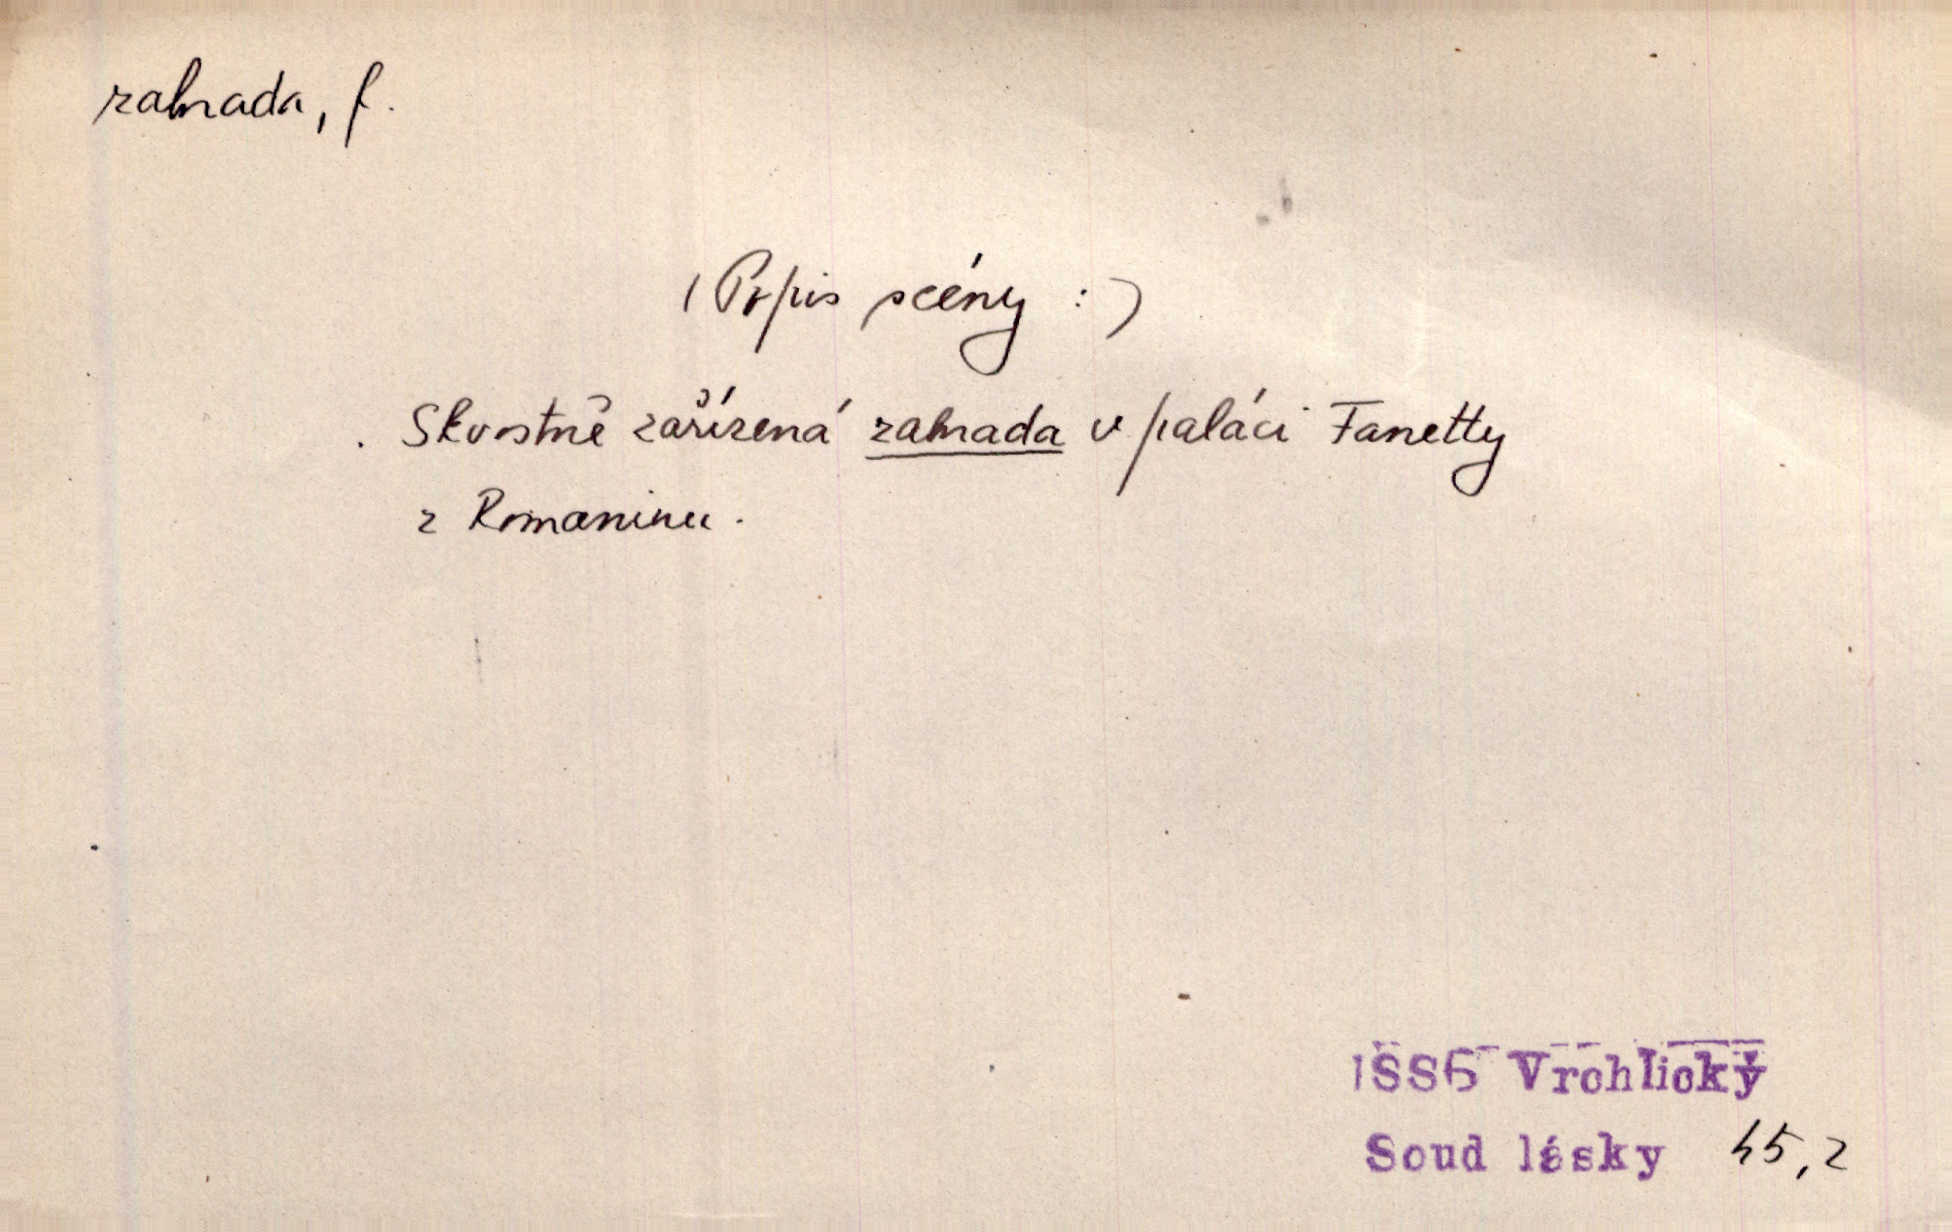 zahrada, f.
(Popis scény :)
. Skvostně zařízená zahrada v paláci Fanetty
z Romaninu.
1886 Vrchlický
Soud lásky 45,2